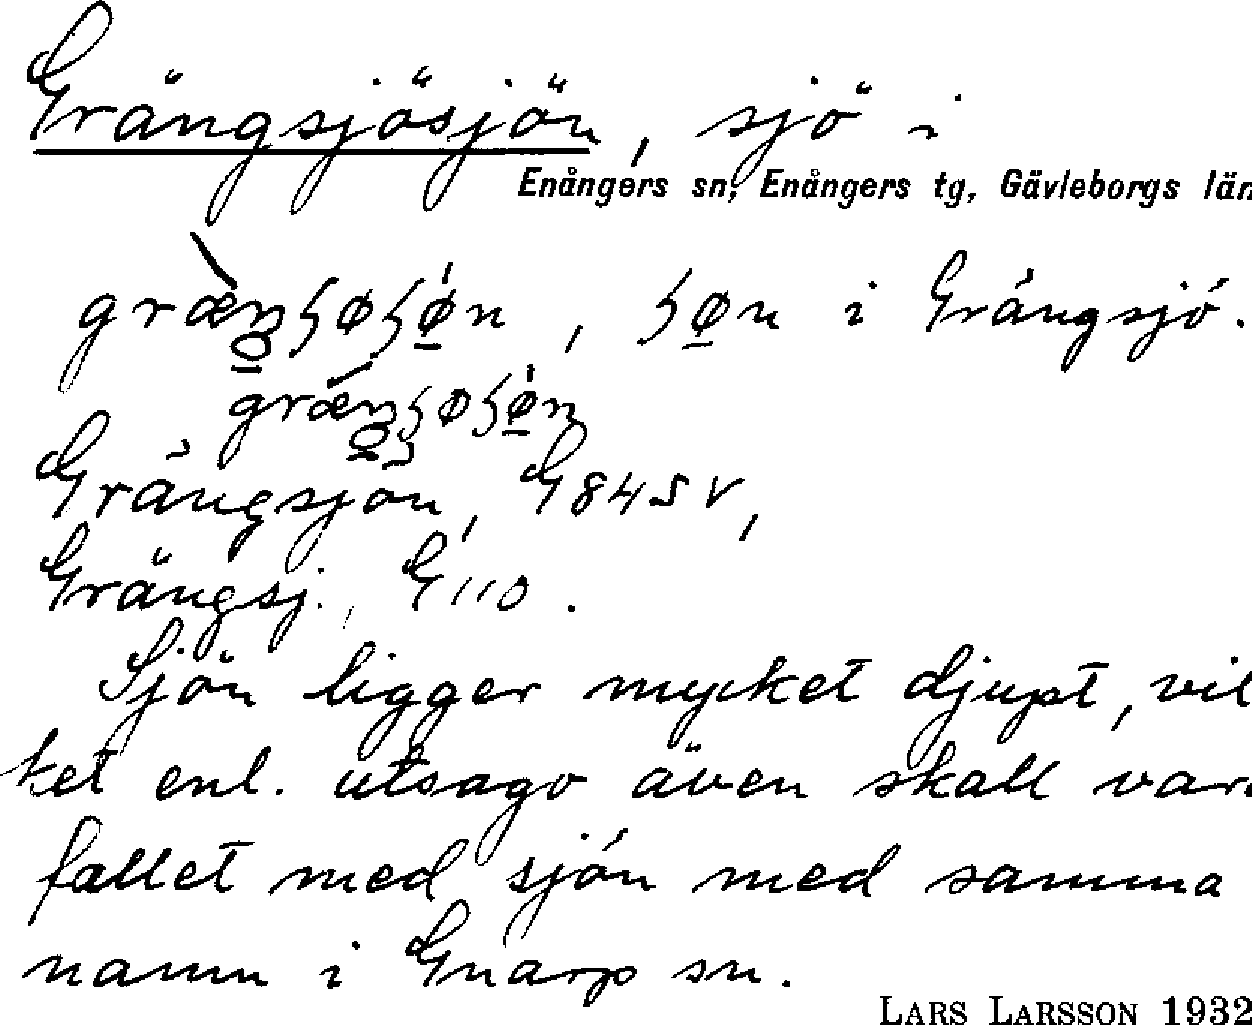 Grängsjösjön, sjö i
Enångers sn, Enångers tg, Gävleborgs län
i Grängsjö.
Grängsjön, G 84 SV,
Grängsj., G 110.
Sjön ligger mycket djupt, vil
ket enl. utsago även skall var
fallet med sjön med samma
namn i Gnarp sn.
LARS LARSSON 1932